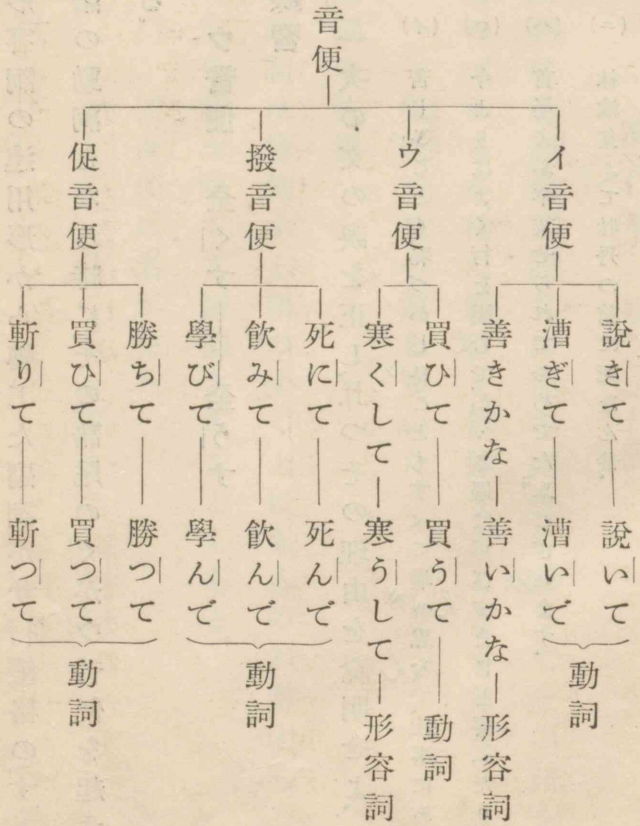 音便
イ音便
說きて――說いて
漕ぎて――漕いで
動詞
善きかな―善いかな―形容詞
ウ音便
買ひて――買うて――動詞
寒くして―寒うして―形容詞
撥音便
死にて――死んで
飮みて――飮んで
學びて――學んで
動詞
促音便
勝ちて――勝つて
買ひて――買つて
斬りて――斬つて
動詞